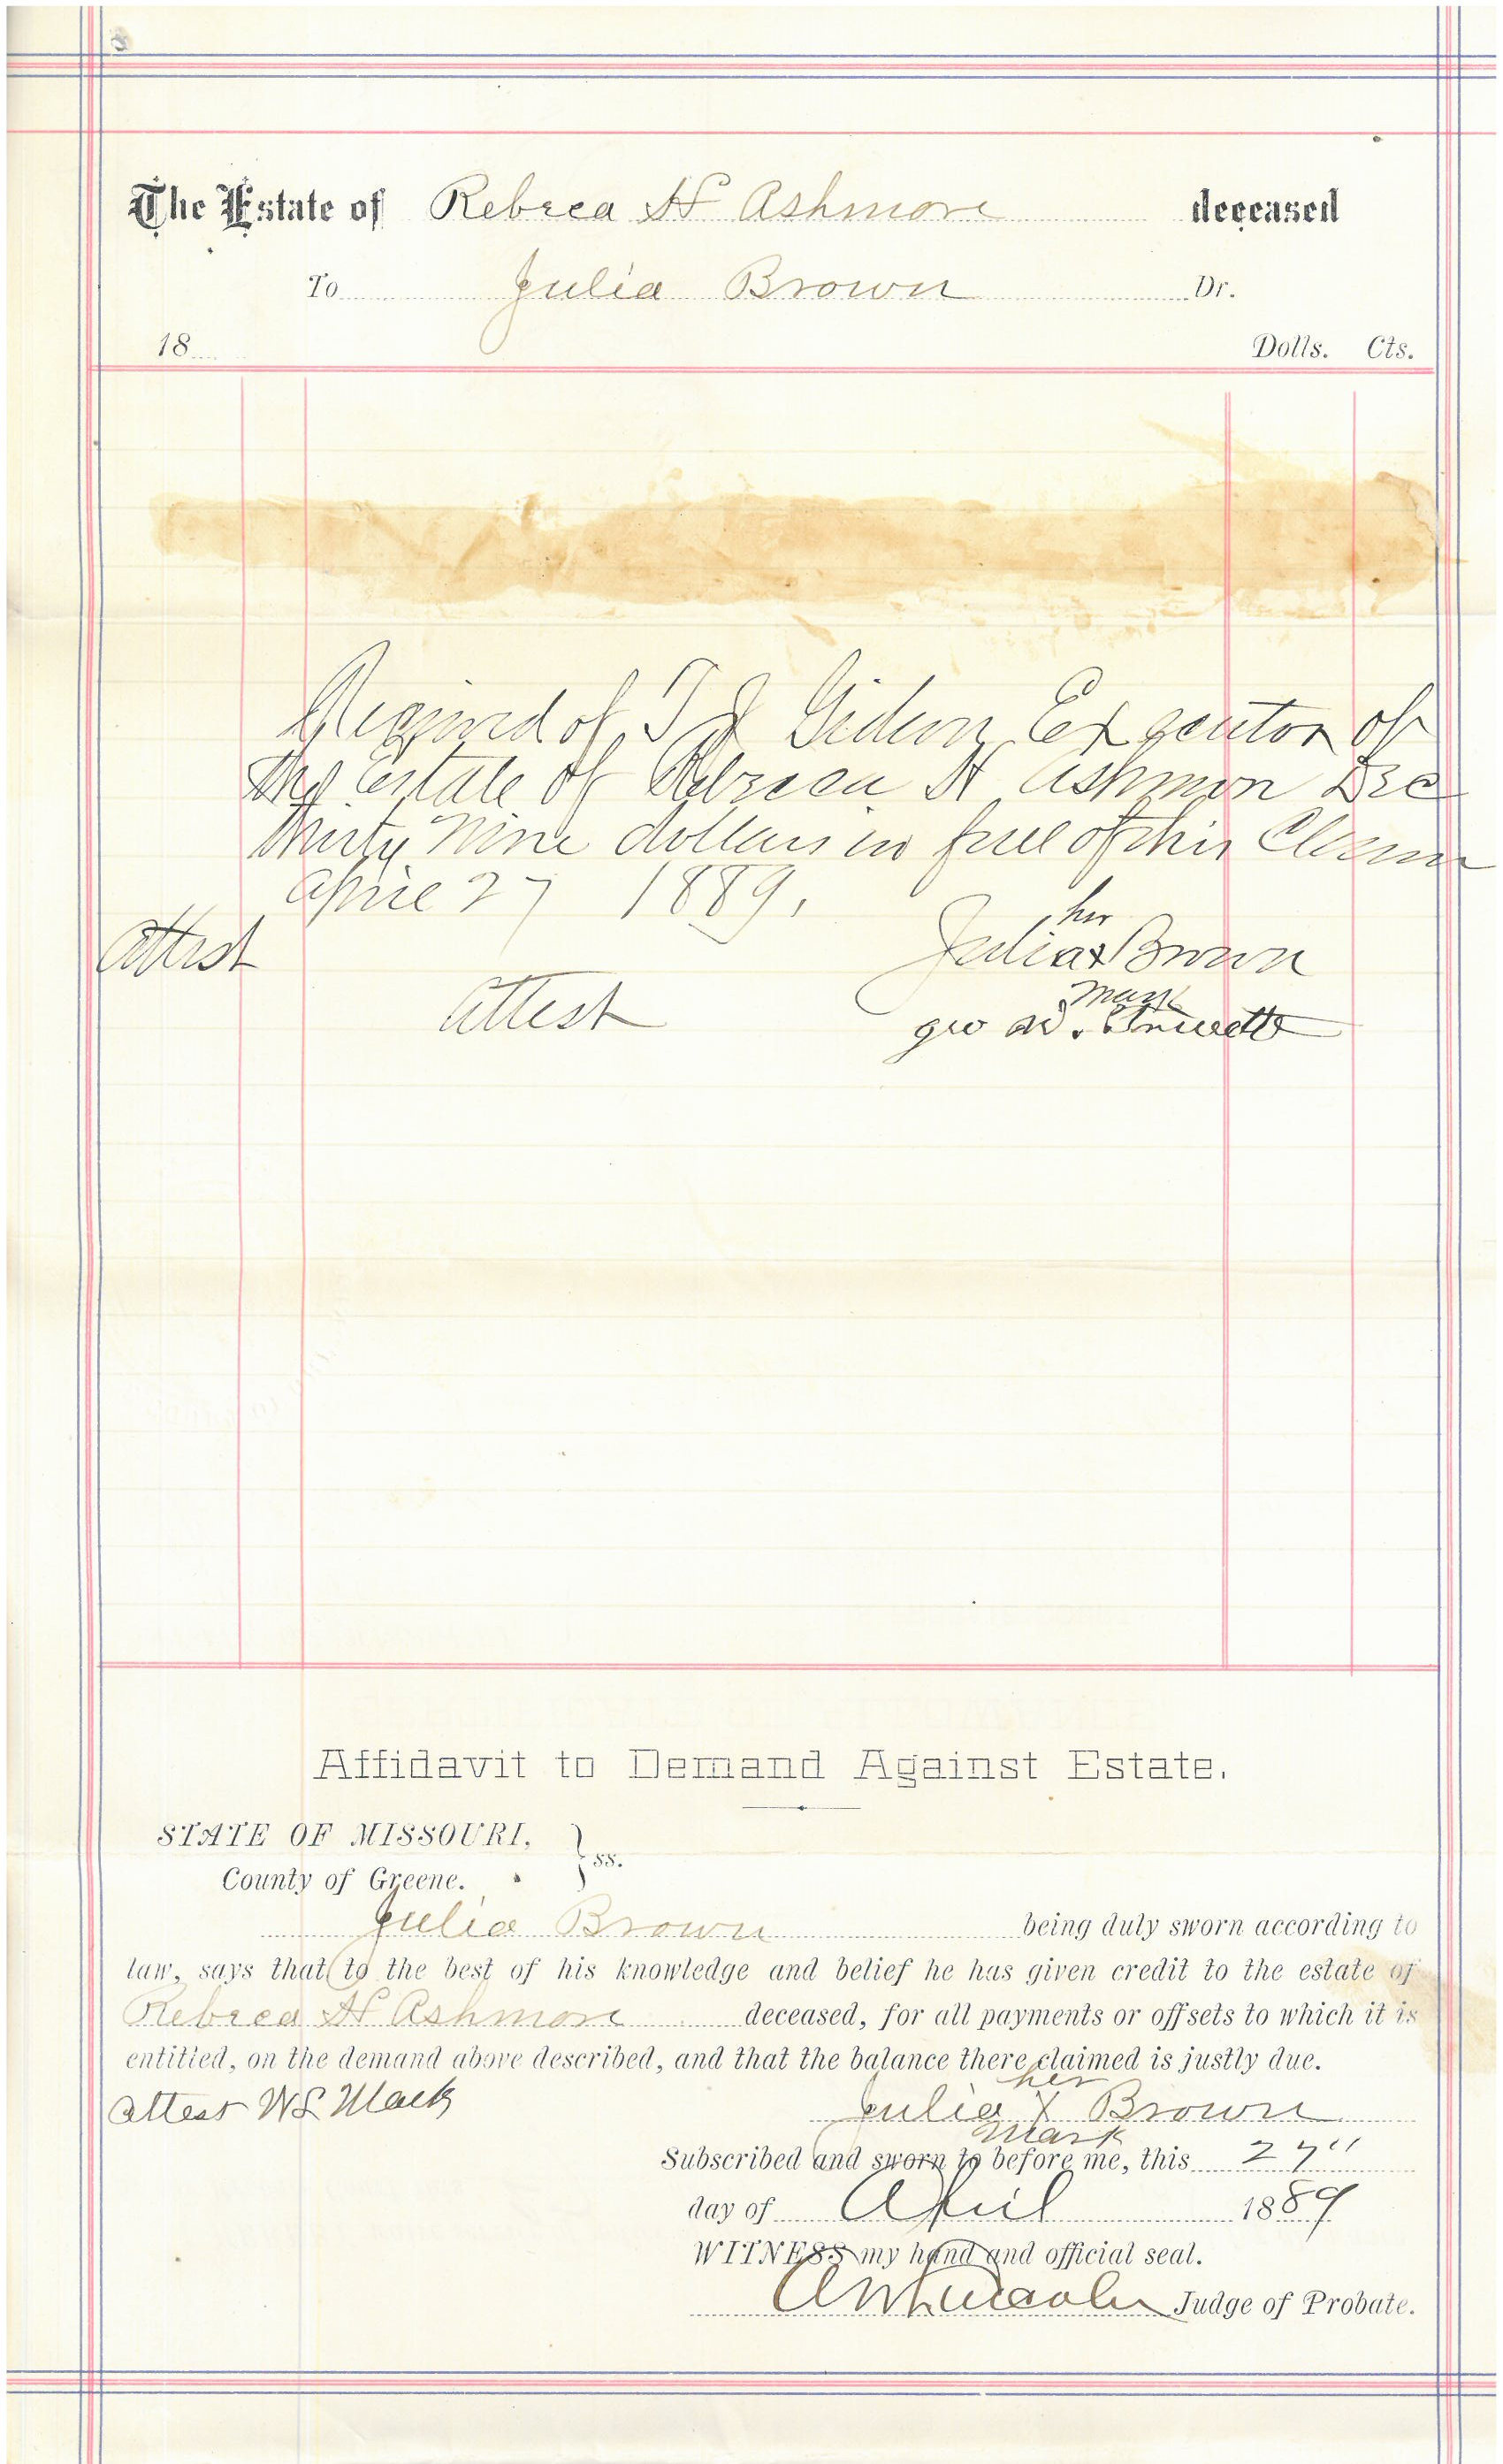 The Estate of Rebeca H Ashmore deceased
To Julia Brown Dr.
18 Dolls. Cts.
Received of T J Gideon Executor of
the Estate of Rebecca H Ashmore Dec
thirty nine dollars in full of this Claim
April 27 1889.
her
attest Julia x Brown
mark
attest geo W.
Affidavit to Demand Against Estate.
STATE OF MISSOURI, } ss.
County of Greene.
Julia Brown being duly sworn according to
law, says that to the best of his knowledge and belief he has given credit to the estate of
Rebeca H Ashmore deceased, for all payments or offsets to which it is
entitled, on the demand above described, and that the balance there claimed is justly due.
her
attest W L Mack Julia X Brown
mark
Subscribed and sworn to before me, this 27"
day of April 1889
WITNESS my hand and official seal.
Judge of Probate.